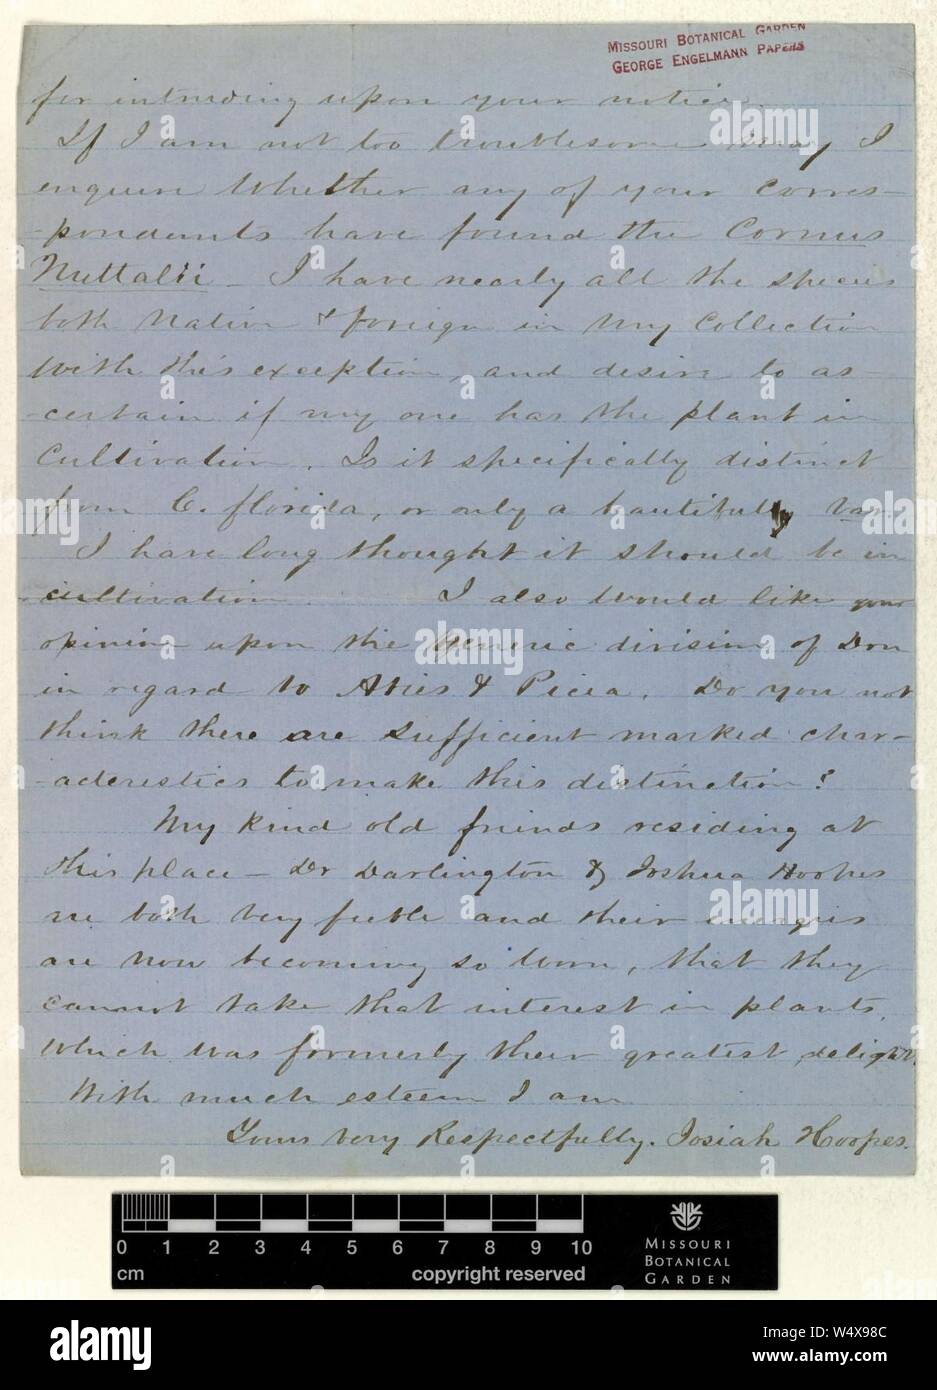 MISSOURI BOTANICAL GARDEN
GEORGE ENGELMANN PAPERS
for intruding upon your notice.
If I am not too troublesome may I
enquire whether any of your corres-
-pondents have found the Cornus
Nuttalii - I have nearly all the species
both native & foreign in my collection
with this exception, and desire to as-
-certain if any one has the plant in
cultivation. Is it specifically distinct
from C. florida, or only a beautiful var.
I have long thought it should be in
cultivation. I also would like your
opinion upon the generic division of Don
in regard to Abies & Picea. Do you not
think there are sufficient marked char-
-acteristics to make this distinction?
My kind old friends residing at
this place - Dr Darlington & Joshua Hoopes
are both very feeble and their energies
are now becoming so worn, that they
cannot take that interest in plants,
which was formerly their greatest delight.
With much esteem I am
Yours very Respectfully. Josiah Hoopes.
0 1 2 3 4 5 6 7 8 9 10
cm copyright reserved
MISSOURI
BOTANICAL
GARDEN
alamy
Image ID: W4X98C
www.alamy.com